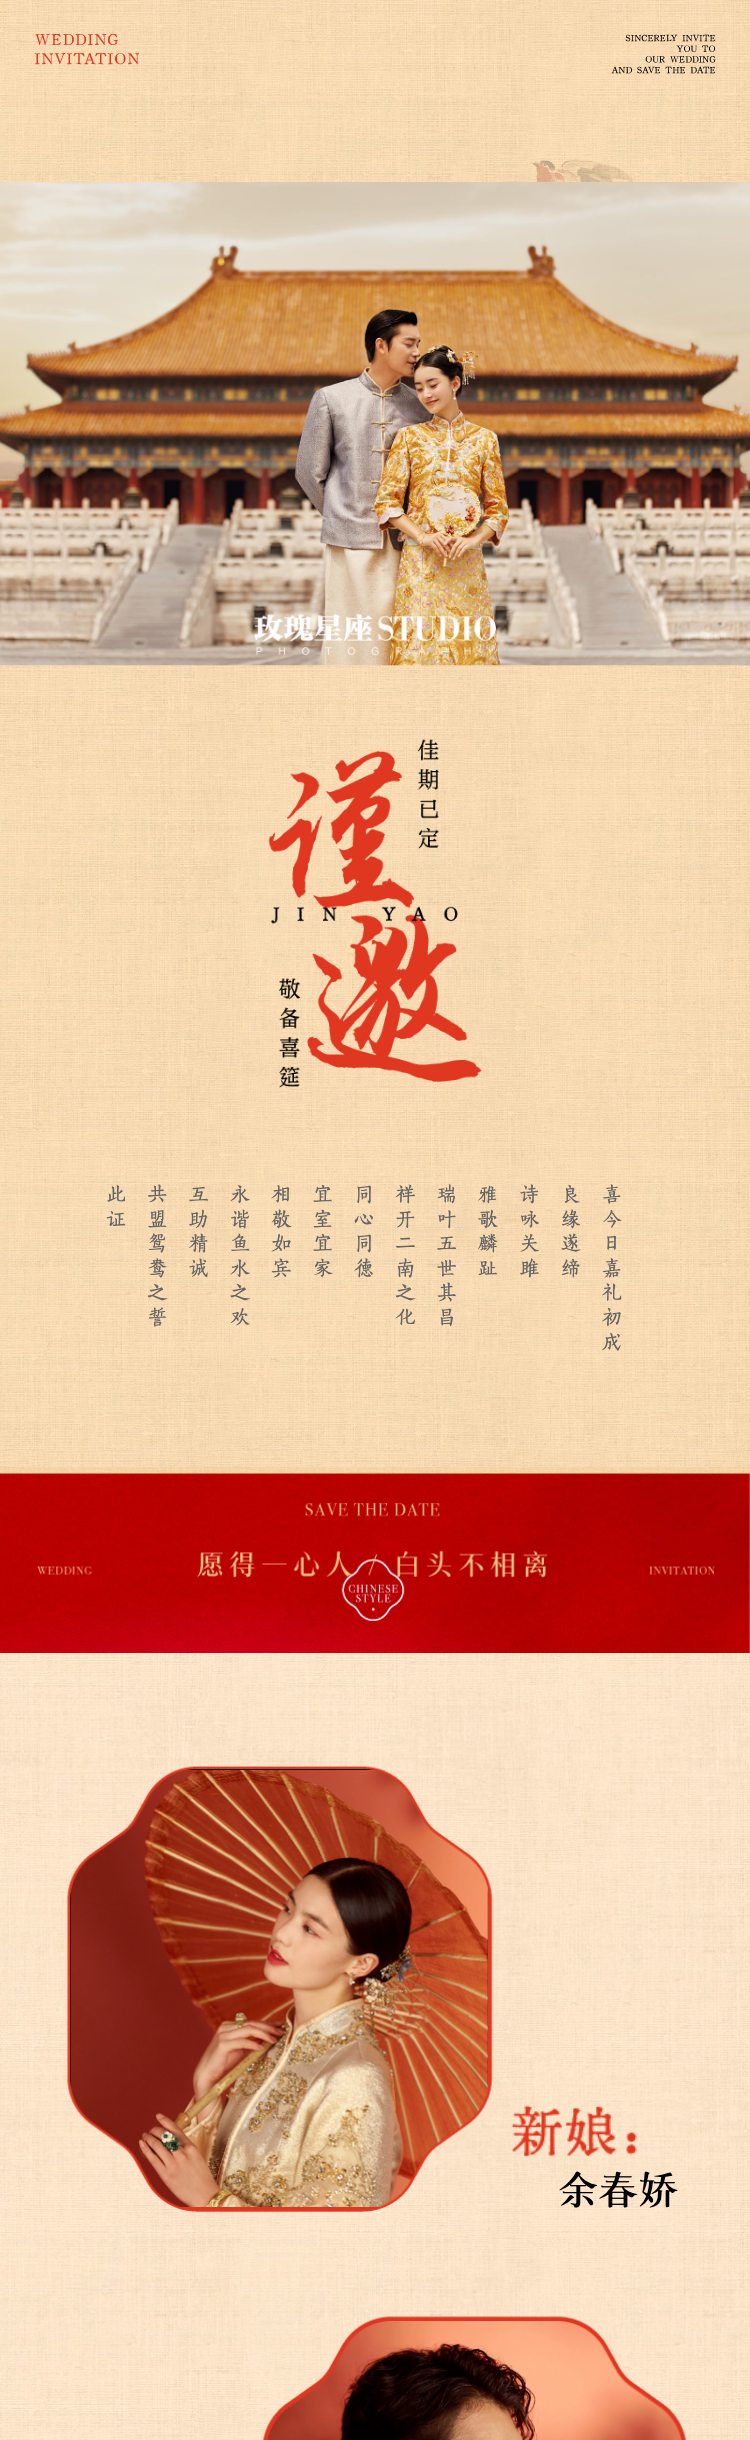 WEDDING
INVITATION
SINCERELY INVITE
YOU TO
OUR WEDDING
AND SAVE THE DATE
玫瑰星座STUDIO
PHOTOGRAPHY
佳期已定
谨邀
JIN YAO
敬备喜筵
喜今日嘉礼初成
良缘遂缔
诗咏关雎
雅歌麟趾
瑞叶五世其昌
祥开二南之化
同心同德
宜室宜家
相敬如宾
永谐鱼水之欢
互助精诚
共盟鸳鸯之誓
此证
SAVE THE DATE
WEDDING
愿得一心人/白头不相离
INVITATION
CHINESE
STYLE
新娘：
余春娇